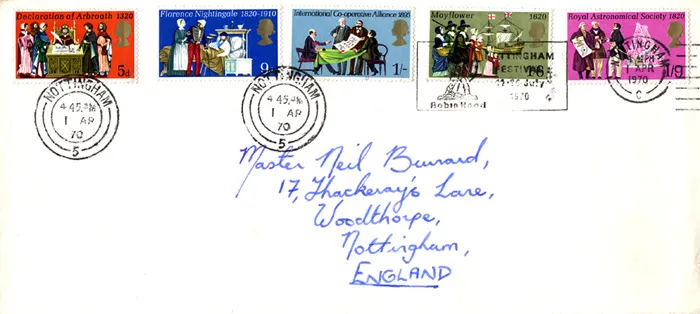 Declaration of Arbroath 1320
5d
Florence Nightingale 1820-1910
9d
International Co-operative Alliance 1895
1/-
Mayflower 1620
1/6
Royal Astronomical Society 1820
1/9
NOTTINGHAM
4 45 PM
1 AP
70
5
NOTTINGHAM
4 45 PM
1 AP
70
5
NOTTINGHAM
FESTIVAL
JULY
1970
Robin Hood
NOTTINGHAM
PM
1 APR
1970
C
Master Neil Burrard,
17, Thackeray's Lane,
Woodthorpe,
Nottingham,
ENGLAND